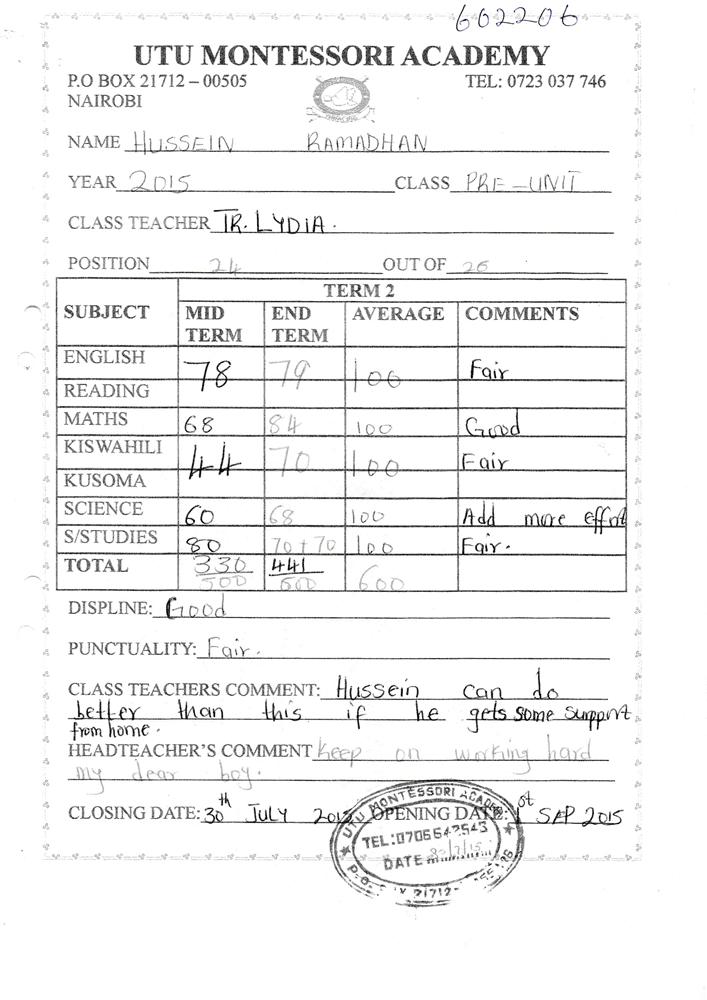 602206
UTU MONTESSORI ACADEMY
P.O BOX 21712 – 00505 TEL: 0723 037 746
NAIROBI
NAME HUSSEIN RAMADHAN
YEAR 2015 CLASS PRE-UNIT
CLASS TEACHER TR. LYDIA.
POSITION 24 OUT OF 26
TERM 2
SUBJECT MID TERM END TERM AVERAGE COMMENTS
ENGLISH 78 79 100 Fair
READING
MATHS 68 84 100 Good
KISWAHILI 44 70 100 Fair
KUSOMA
SCIENCE 60 68 100 Add more effort
S/STUDIES 80 70+70 100 Fair.
TOTAL 330 441
500 600 600
DISPLINE: Good
PUNCTUALITY: Fair.
CLASS TEACHERS COMMENT: Hussein can do
better than this if he gets some surpport
from home.
HEADTEACHER'S COMMENT keep on working hard
my dear boy.
CLOSING DATE: 30th JULY OPENING DATE: 1st SAP 2015
UTU MONTESSORI ACADEMY
TEL:0706642543
DATE
21712